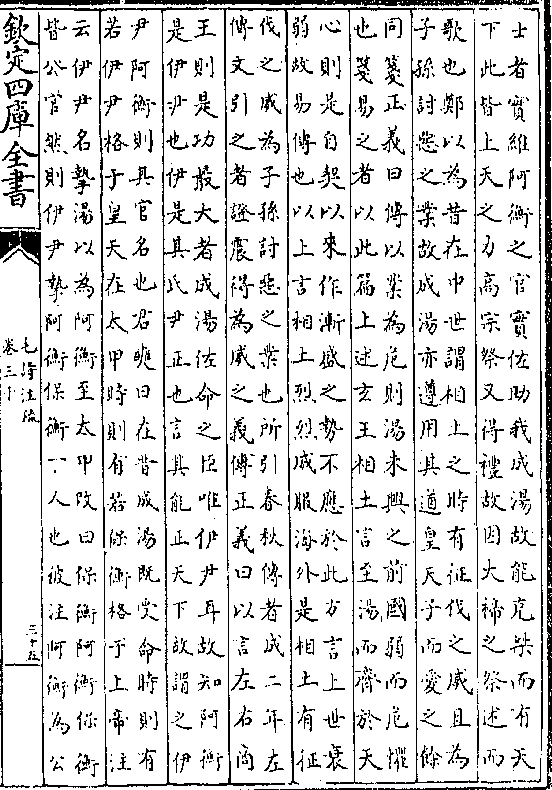 士者實維阿衡之官實佐助我成湯故能克桀而有天
下此皆上天之力高宗祭又得禮故因大禘之祭述而
歌也鄭以為昔在中世謂相上之時有征伐之威且為
子孫討惡之業故成湯亦遵用其道皇天子而愛之餘
同箋正義曰傳以業為危則湯未興之前國弱而危懼
也箋易之者以此篇上述玄王相土言至湯而齊於天
心則是自契以來作漸盛之勢不應於此方言上世衰
弱故易傳也以上言相上烈烈威服海外是相土有征
伐之威為子孫討惡之業也所引春秋傳者成二年左
傳文引之者證震得為威之義傳正義曰以言左右商
王則是功最大者成湯佐命之臣唯伊尹耳故知阿衡
是伊尹也伊是其氏尹正也言其能正天下故謂之伊
尹阿衡則其官名也君奭曰在昔成湯既受命時則有
若伊尹格于皇天在太甲時則有若保衡格于上帝注
云伊尹名摯湯以為阿衡至太甲改曰保衡阿衡保衡
皆公官然則伊尹摯阿衡保衡一人也彼注阿衡為公
欽定四庫全書
毛詩注疏
卷三十
三十五